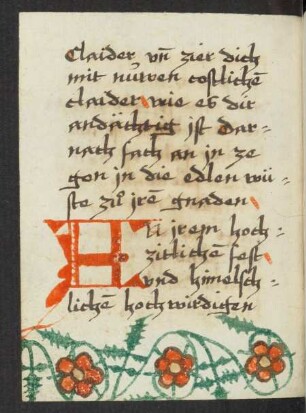 Claider vn̄ zier dich
mit nuͤwen costlichē
claider wie es dir
andächtig ist dar=
nach fach an in ze
gon in die edlen wü=
ste zuͦ jrē gnaden
Zu jrem hoch=
zitlichen fest
vnd himelsch=
lichen hochwirdigen